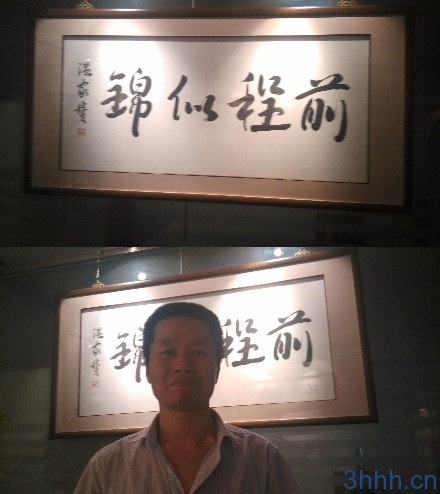 前程似錦
温家寶
前程錦
温家寶
3hhh.cn